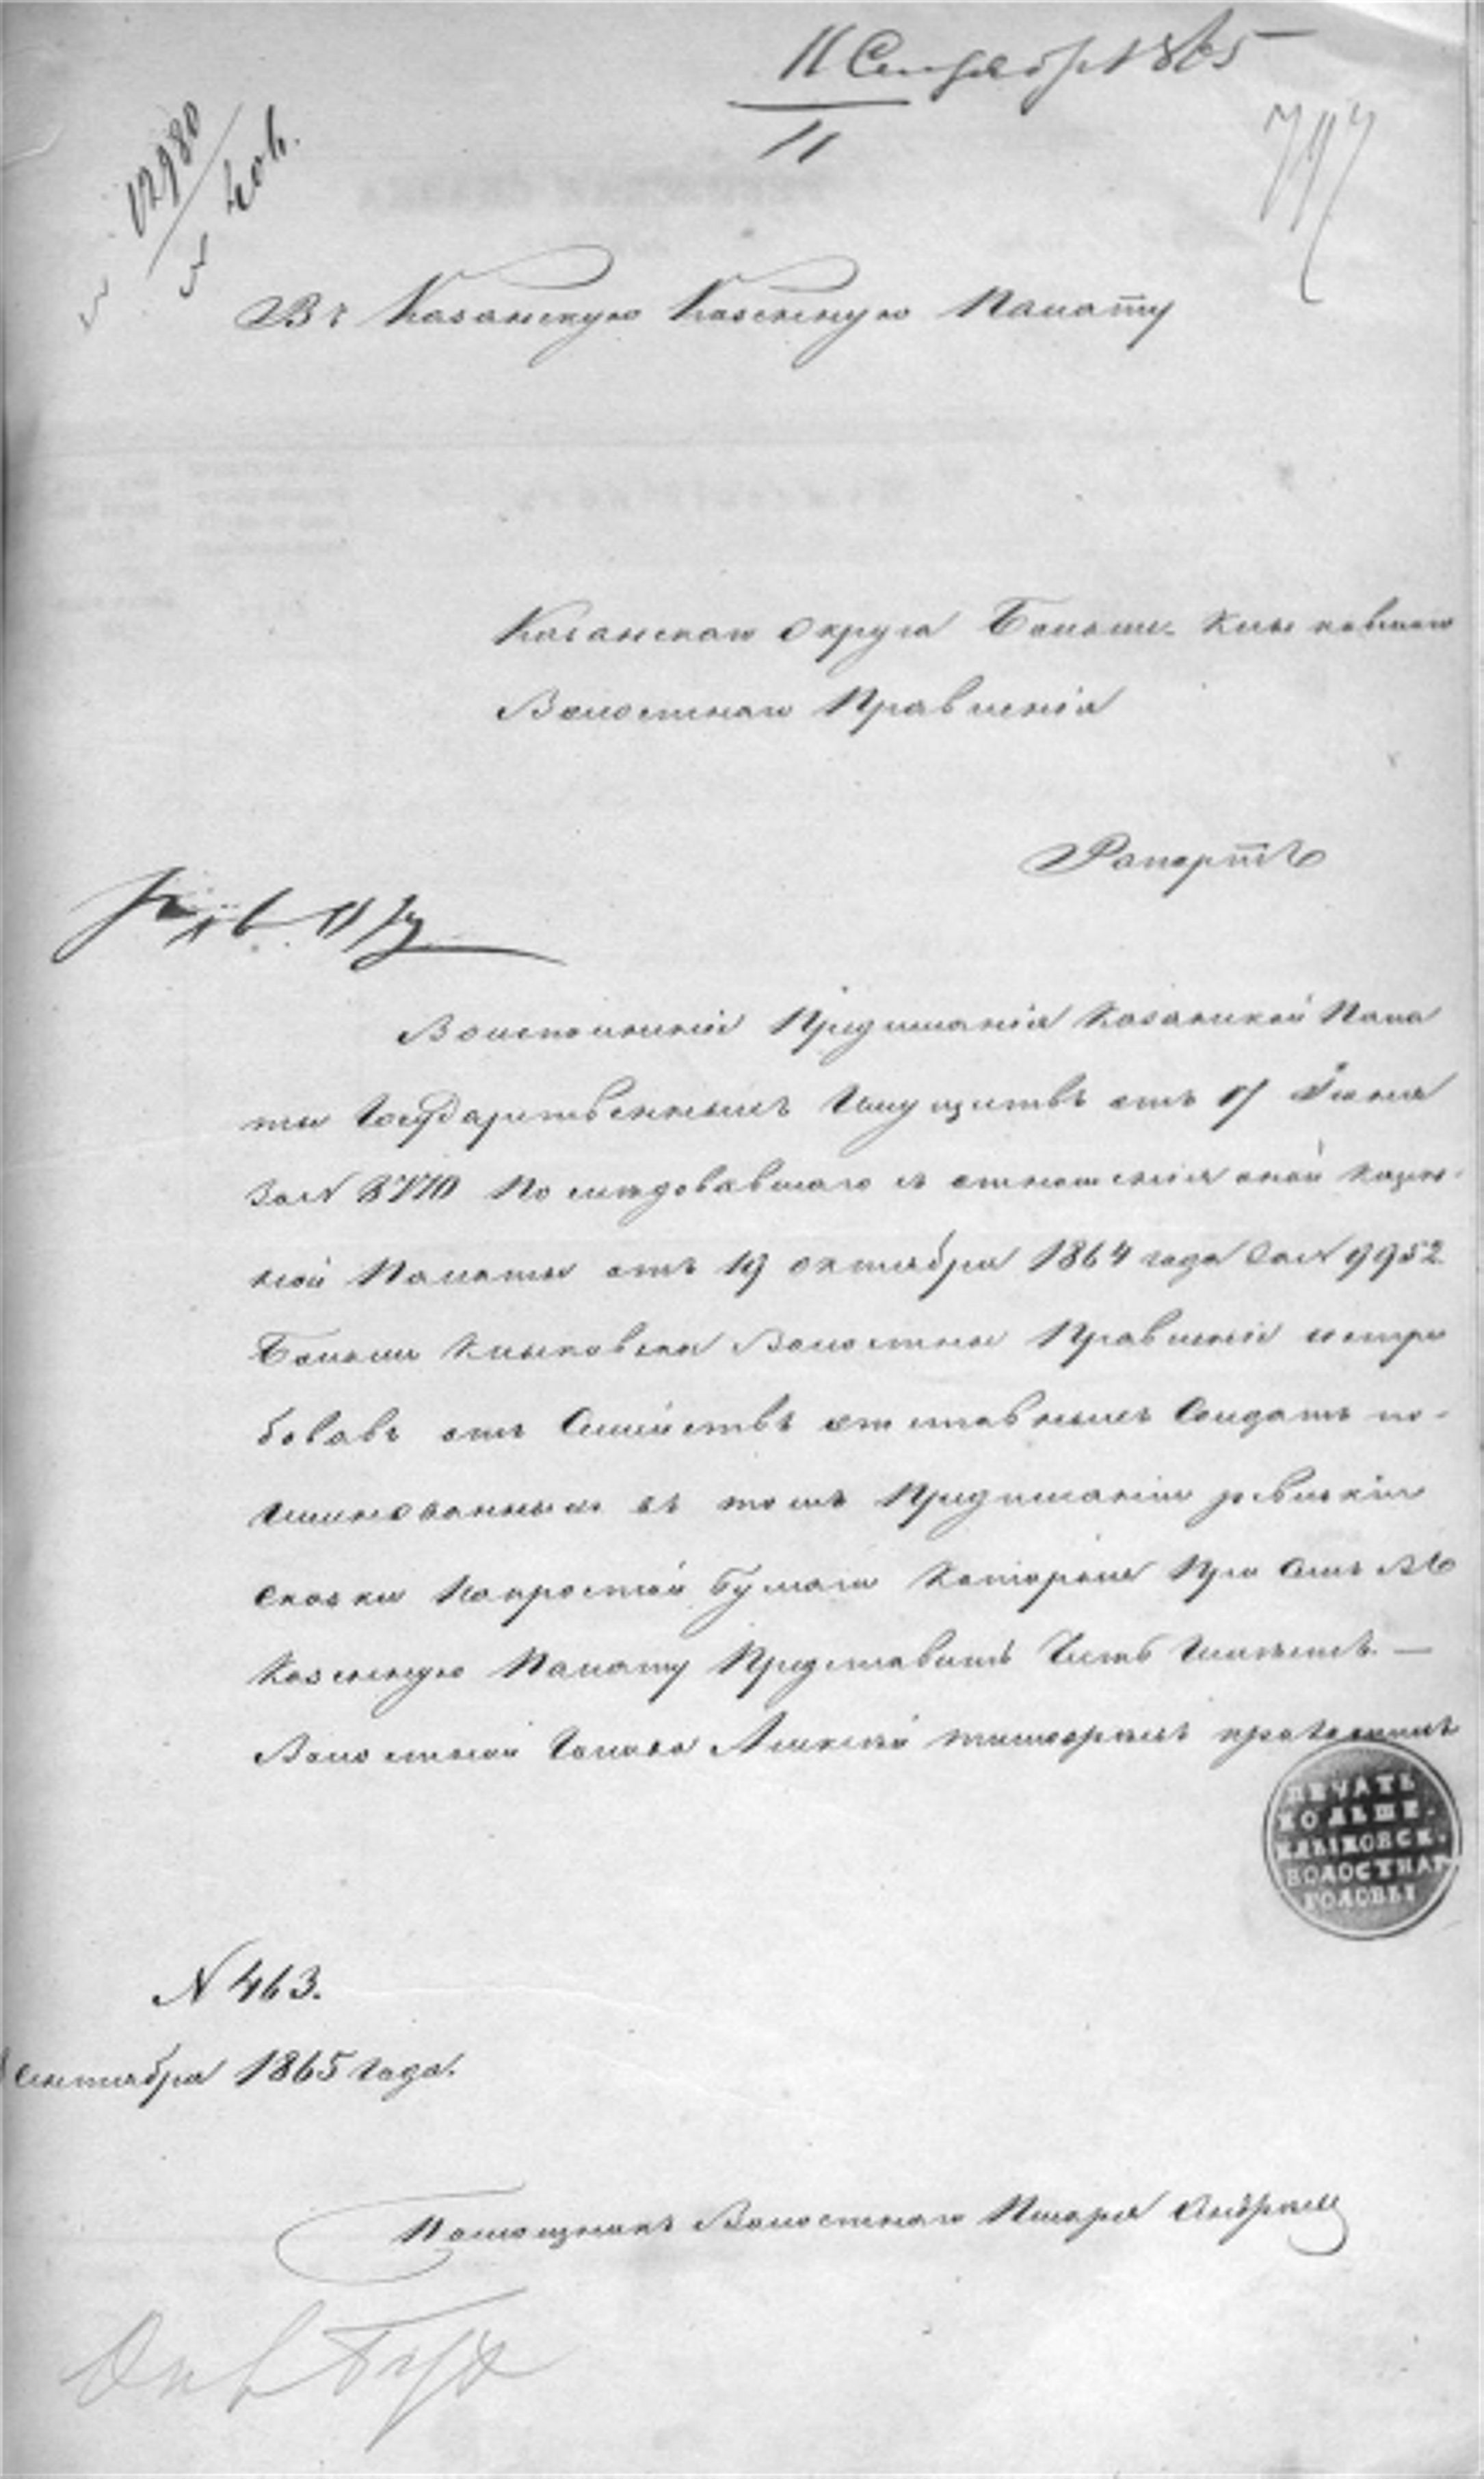 11 Сентября 1865
11
12980
Въ Казанскую Казенную Палату
Казанскаго Округа Больше-Клыковскаго
Волостнаго Правленія
Рапортъ
Воисполненіе Предписанія Казанской Пала
ты Государственныхъ Имуществъ отъ 17 Іюня
За № 8770 Последовавшаго съ отношенія оной казен-
ной Палаты отъ 19 октября 1864 года За № 9952
Больше Клыковское Волостное Правленіе истре
бовавъ отъ Семействъ отставныхъ Солдатъ по-
имянованныхъ въ томъ Предписаніи ревизкіе
сказки на простой бумаги Которые При семъ въ
Казенную Палату Представить Честь Имѣетъ. —
Волостной Голова Алексей
ПЕЧАТЬ
БОЛЬШЕ-
КЛЫКОВСК.
ВОЛОСТНАГ
ГОЛОВЫ
№ 463.
Сентября 1865 года.
Помощникъ Волостнаго Писаря Андреев